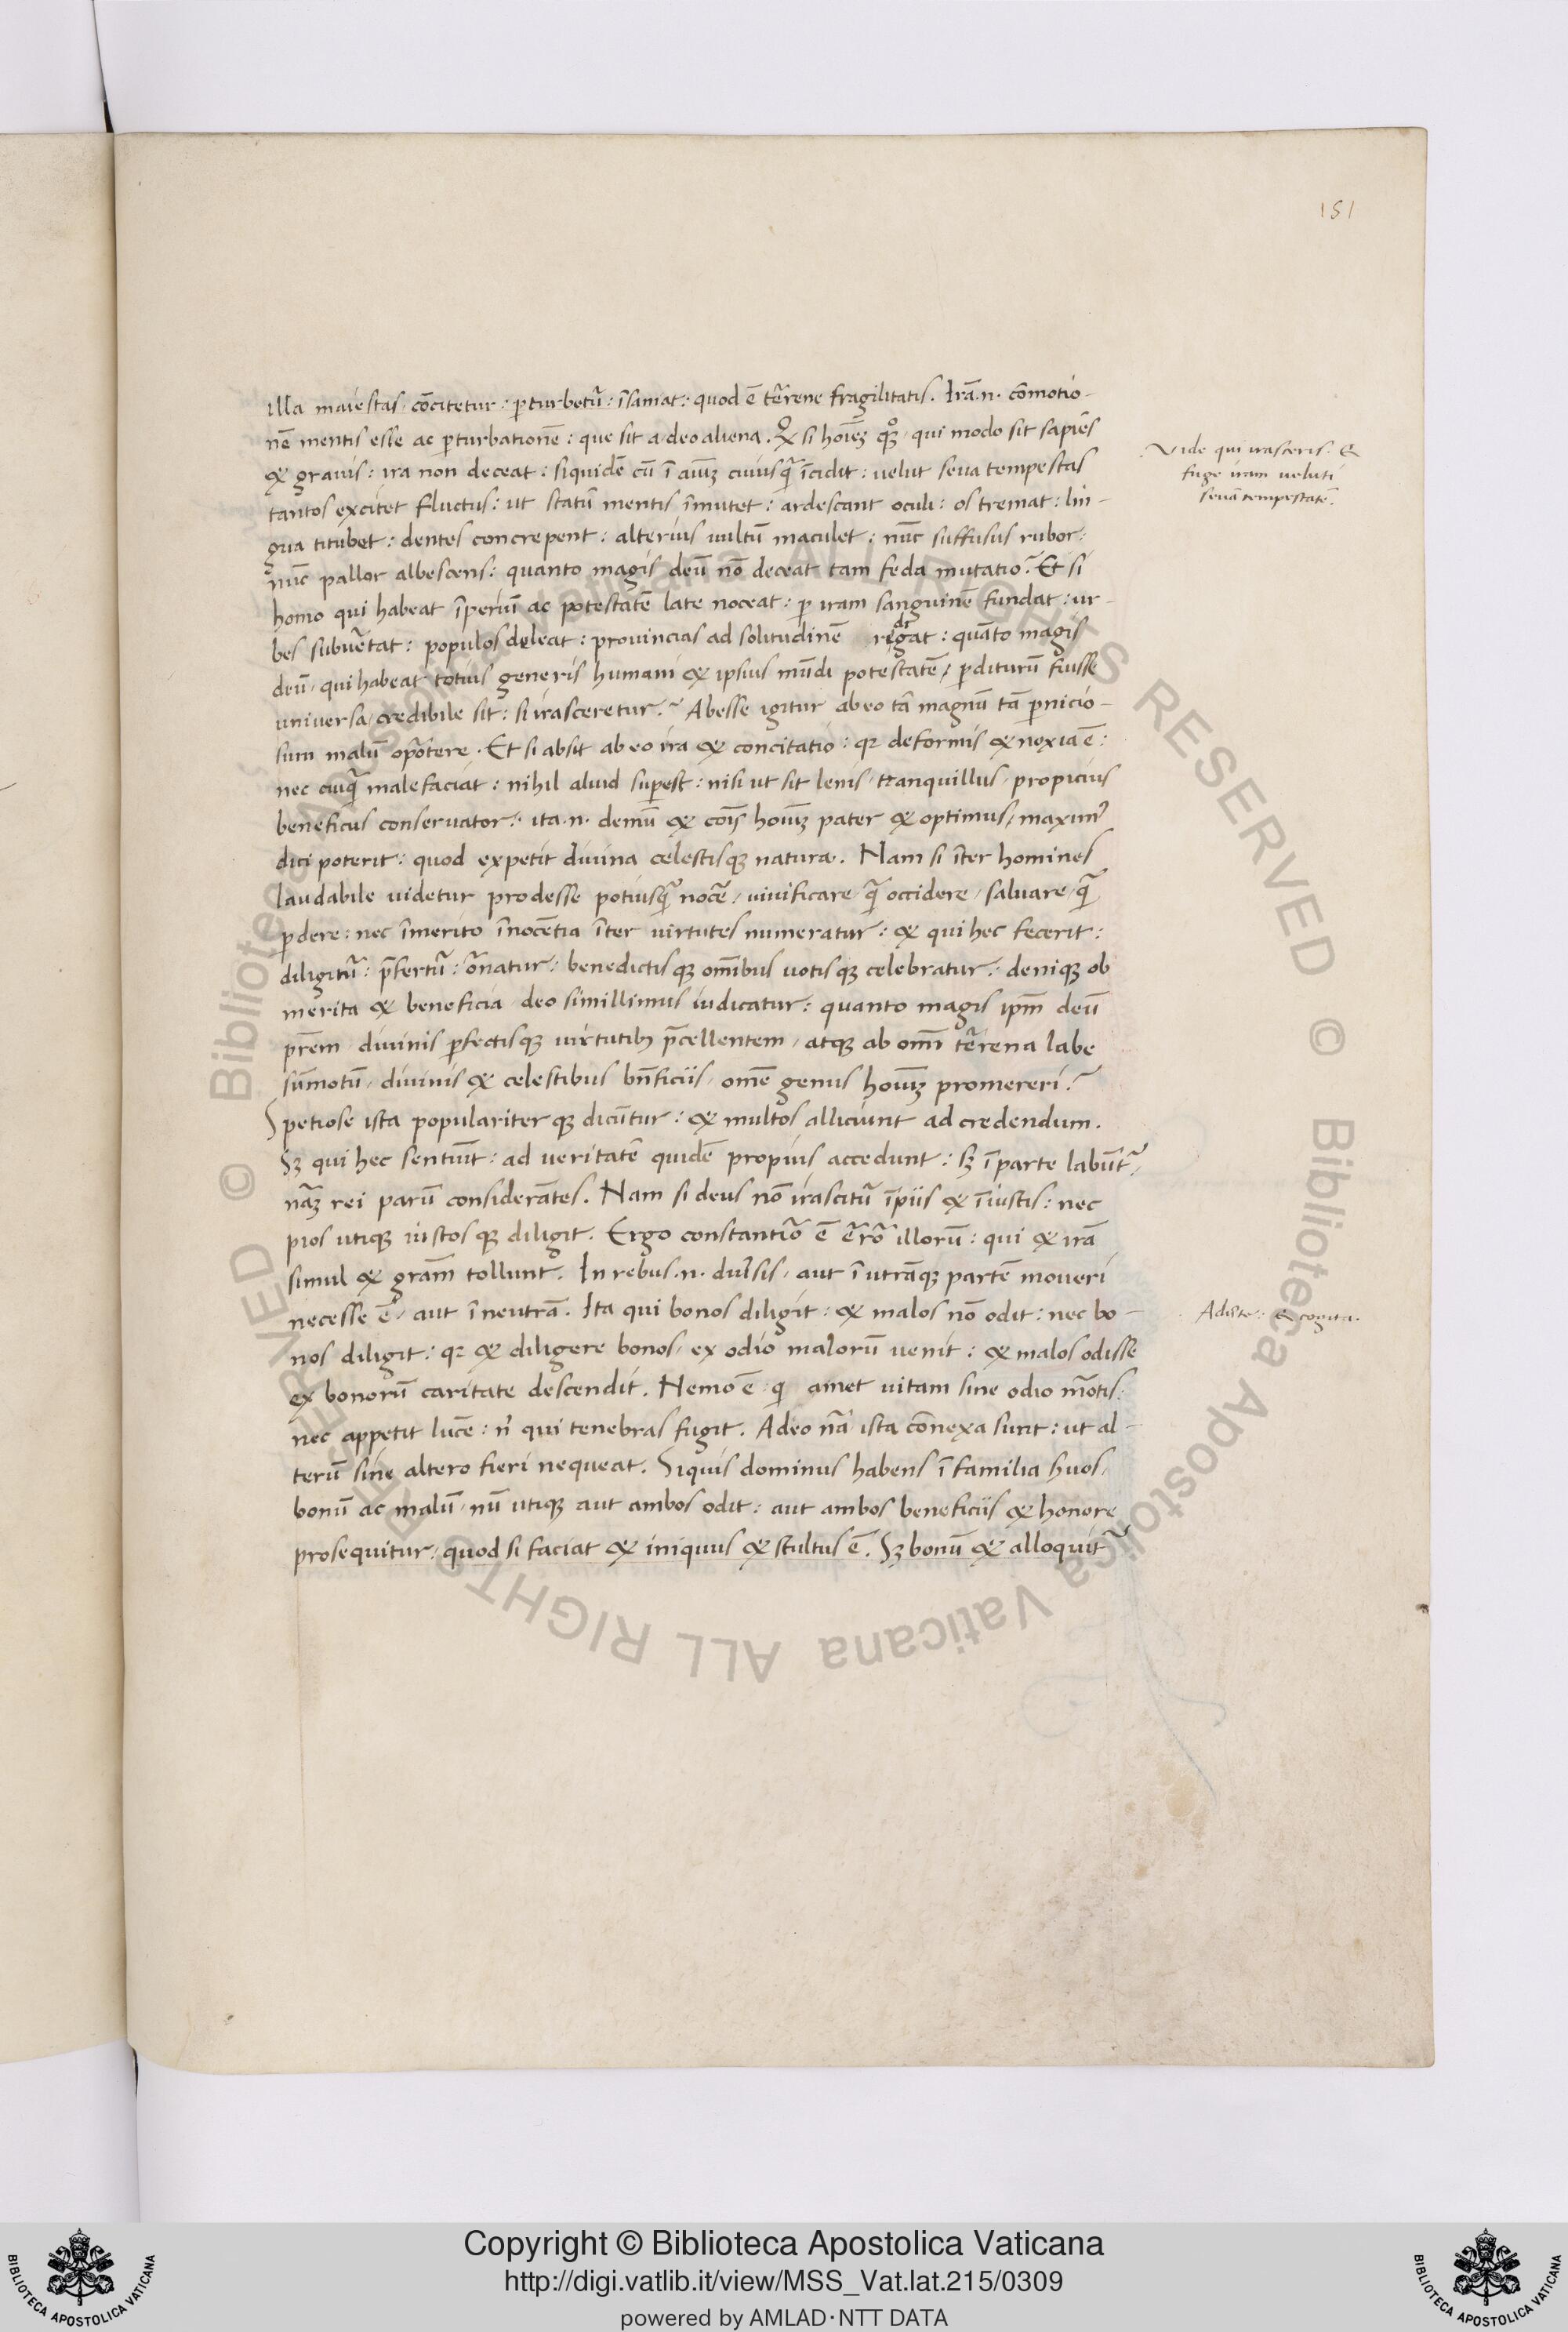 151
illa maiestas. cōcitetur: perturbetur̃: īsaniat: quod ē tẽrene fragilitatis. Irã .n. cōmotio-
nē mentis esse ac perturbationē: que sit a deo aliena. Qͦ si hoiēʒ qͦqʒ. qui modo sit sapiēs
& grauis: ira non deceat: siquidē cū ī aiuʒ cuiusqã īcidit: uelut seua tempestas
tantos excitet fluctus: ut statū mentis īmutet: ardescant oculi: os tremat: lin-
gua titubet: dentes concrepent: alterius uultū maculet: nūc suffusus rubor:
nūc pallor albescens: quanto magis deū nō deceat tam feda mutatio? Et si
homo qui habeat īperiū ac potestatē late noceat: ꝑ iram sanguinē fundat: ur-
bes subuẽtat: populos deleat: prouincias ad solitudinē redigat: quāto magis
deū, qui habeat totius generis humani & ipsius mūdi potestatē, ꝑditurū fuisse
uniuersa, credibile sit: si irasceretur? Abesse igitur ab eo tā magnū tā ꝑnicio-
sum malū oportere. Et si absit ab eo ira & concitatio: qꝛ deformis & noxia ē:
nec cuiqã male faciat: nihil aliud suꝑest: nisi ut sit lenis, tranquillus, propicius
beneficus conseruator: ita .n. demū & cōīs hoiuʒ pater & optimus, maximꝰ
dici poterit: quod expetit diuina celestisqʒ natura. Nam si īter homines
laudabile uidetur prodesse potiusqã nocē, uiuificare qã occidere, saluare qã
ꝑdere: nec īmerito īnocētia īter uirtutes numeratur: & qui hec fecerit:
diligitur̃: p̄fertur̃: ōnatur: benedictisqʒ omībus uotisqʒ celebratur: deniqʒ ob
merita & beneficia deo simillimus iudicatur: quanto magis ip̄m deū
p̄rem diuinis ꝑfectisqʒ uirtutibʒ p̄cellentem, atqʒ ab omī tẽrena labe
sūmotū, diuinis & celestibus bn̄ficiis, omē genus hoiuʒ promereri?
Spetiose ista populariterqʒ dicūtur: & multos alliciunt ad credendum.
Sʒ qui hec sentiūt: ad ueritatē quidē propius accedunt: sʒ ī parte labūtur̃,
nãʒ rei parū considerātes. Nam si deus nō irascitur̃ īpiis & īiustis: nec
pios utiqʒ iustosqʒ diligit. Ergo constantior̃ ē ẽror̃ illorū: qui & irā
simul & gram̄ tollunt. In rebus .n. diũsis, aut ī utrāqʒ partē moueri
necesse ē, aut ī neutrā. Ita qui bonos diligit: & malos nō odit: nec bo-
nos diligit: qꝛ & diligere bonos, ex odio malorū uenit: & malos odisse
ex bonorū caritate descendit. Nemo ē qi amet uitam sine odio mōtis:
nec appetit lucē: nⁱ qui tenebras fugit. Adeo nā ista cōnexa sunt: ut al-
terū sine altero fieri nequeat. Siquis dominus habens ī familia suos,
bonū ac malū, nū utiqʒ aut ambos odit: aut ambos beneficiis & honore
prosequitur: quod si faciat & iniquus & stultus ē. Sʒ bonū & alloquitur̃
Vide qui irasceris: &
fuge iram ueluti
seuā tempestatē.
& cogita.
© Biblioteca Apostolica Vaticana ALL RIGHTS RESERVED © Biblioteca Apostolica Vaticana ALL RIGHTS RESERVED
BIBLIOTECA APOSTOLICA VATICANA
Copyright © Biblioteca Apostolica Vaticana
http://digi.vatlib.it/view/MSS_Vat.lat.215/0309
powered by AMLAD·NTT DATA
BIBLIOTECA APOSTOLICA VATICANA